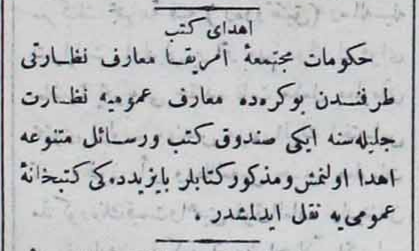 اهدای كتب
حكومات مجتمعهٔ آمريقا معارف نظارتی
طرفندن بوكره ده معارف عموميه نظارت
جليله سنه ايكی صندوق كتب ورسائل متنوعه
اهدا اولنمش ومذكور كتابلر بايزيدده كی كتبخانهٔ
عمومی يه نقل ايدلمشدر .